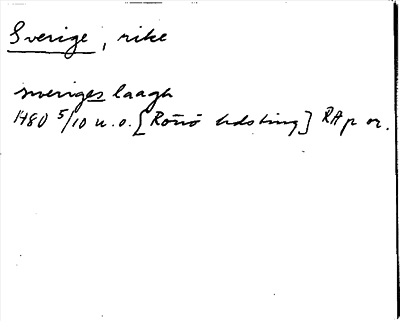 Sverige, rike
sweriges laagh
1480 5/10 u.o. [Rönö hdsting] RA p or.